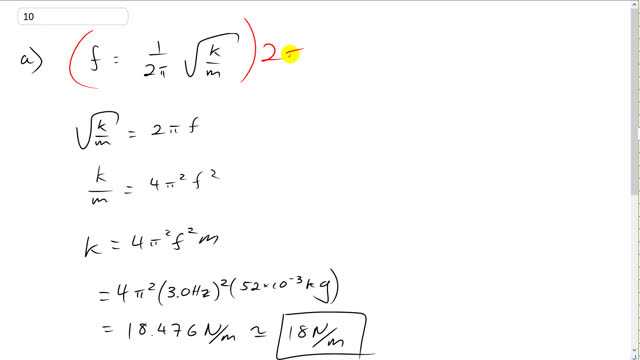 10
a) (f = 1/2π √k/m) 2π
√k/m = 2π f
k/m = 4π² f²
k = 4π² f² m
= 4π² (3.0Hz)² (52×10⁻³ kg)
= 18.476 N/m ≃ 18 N/m